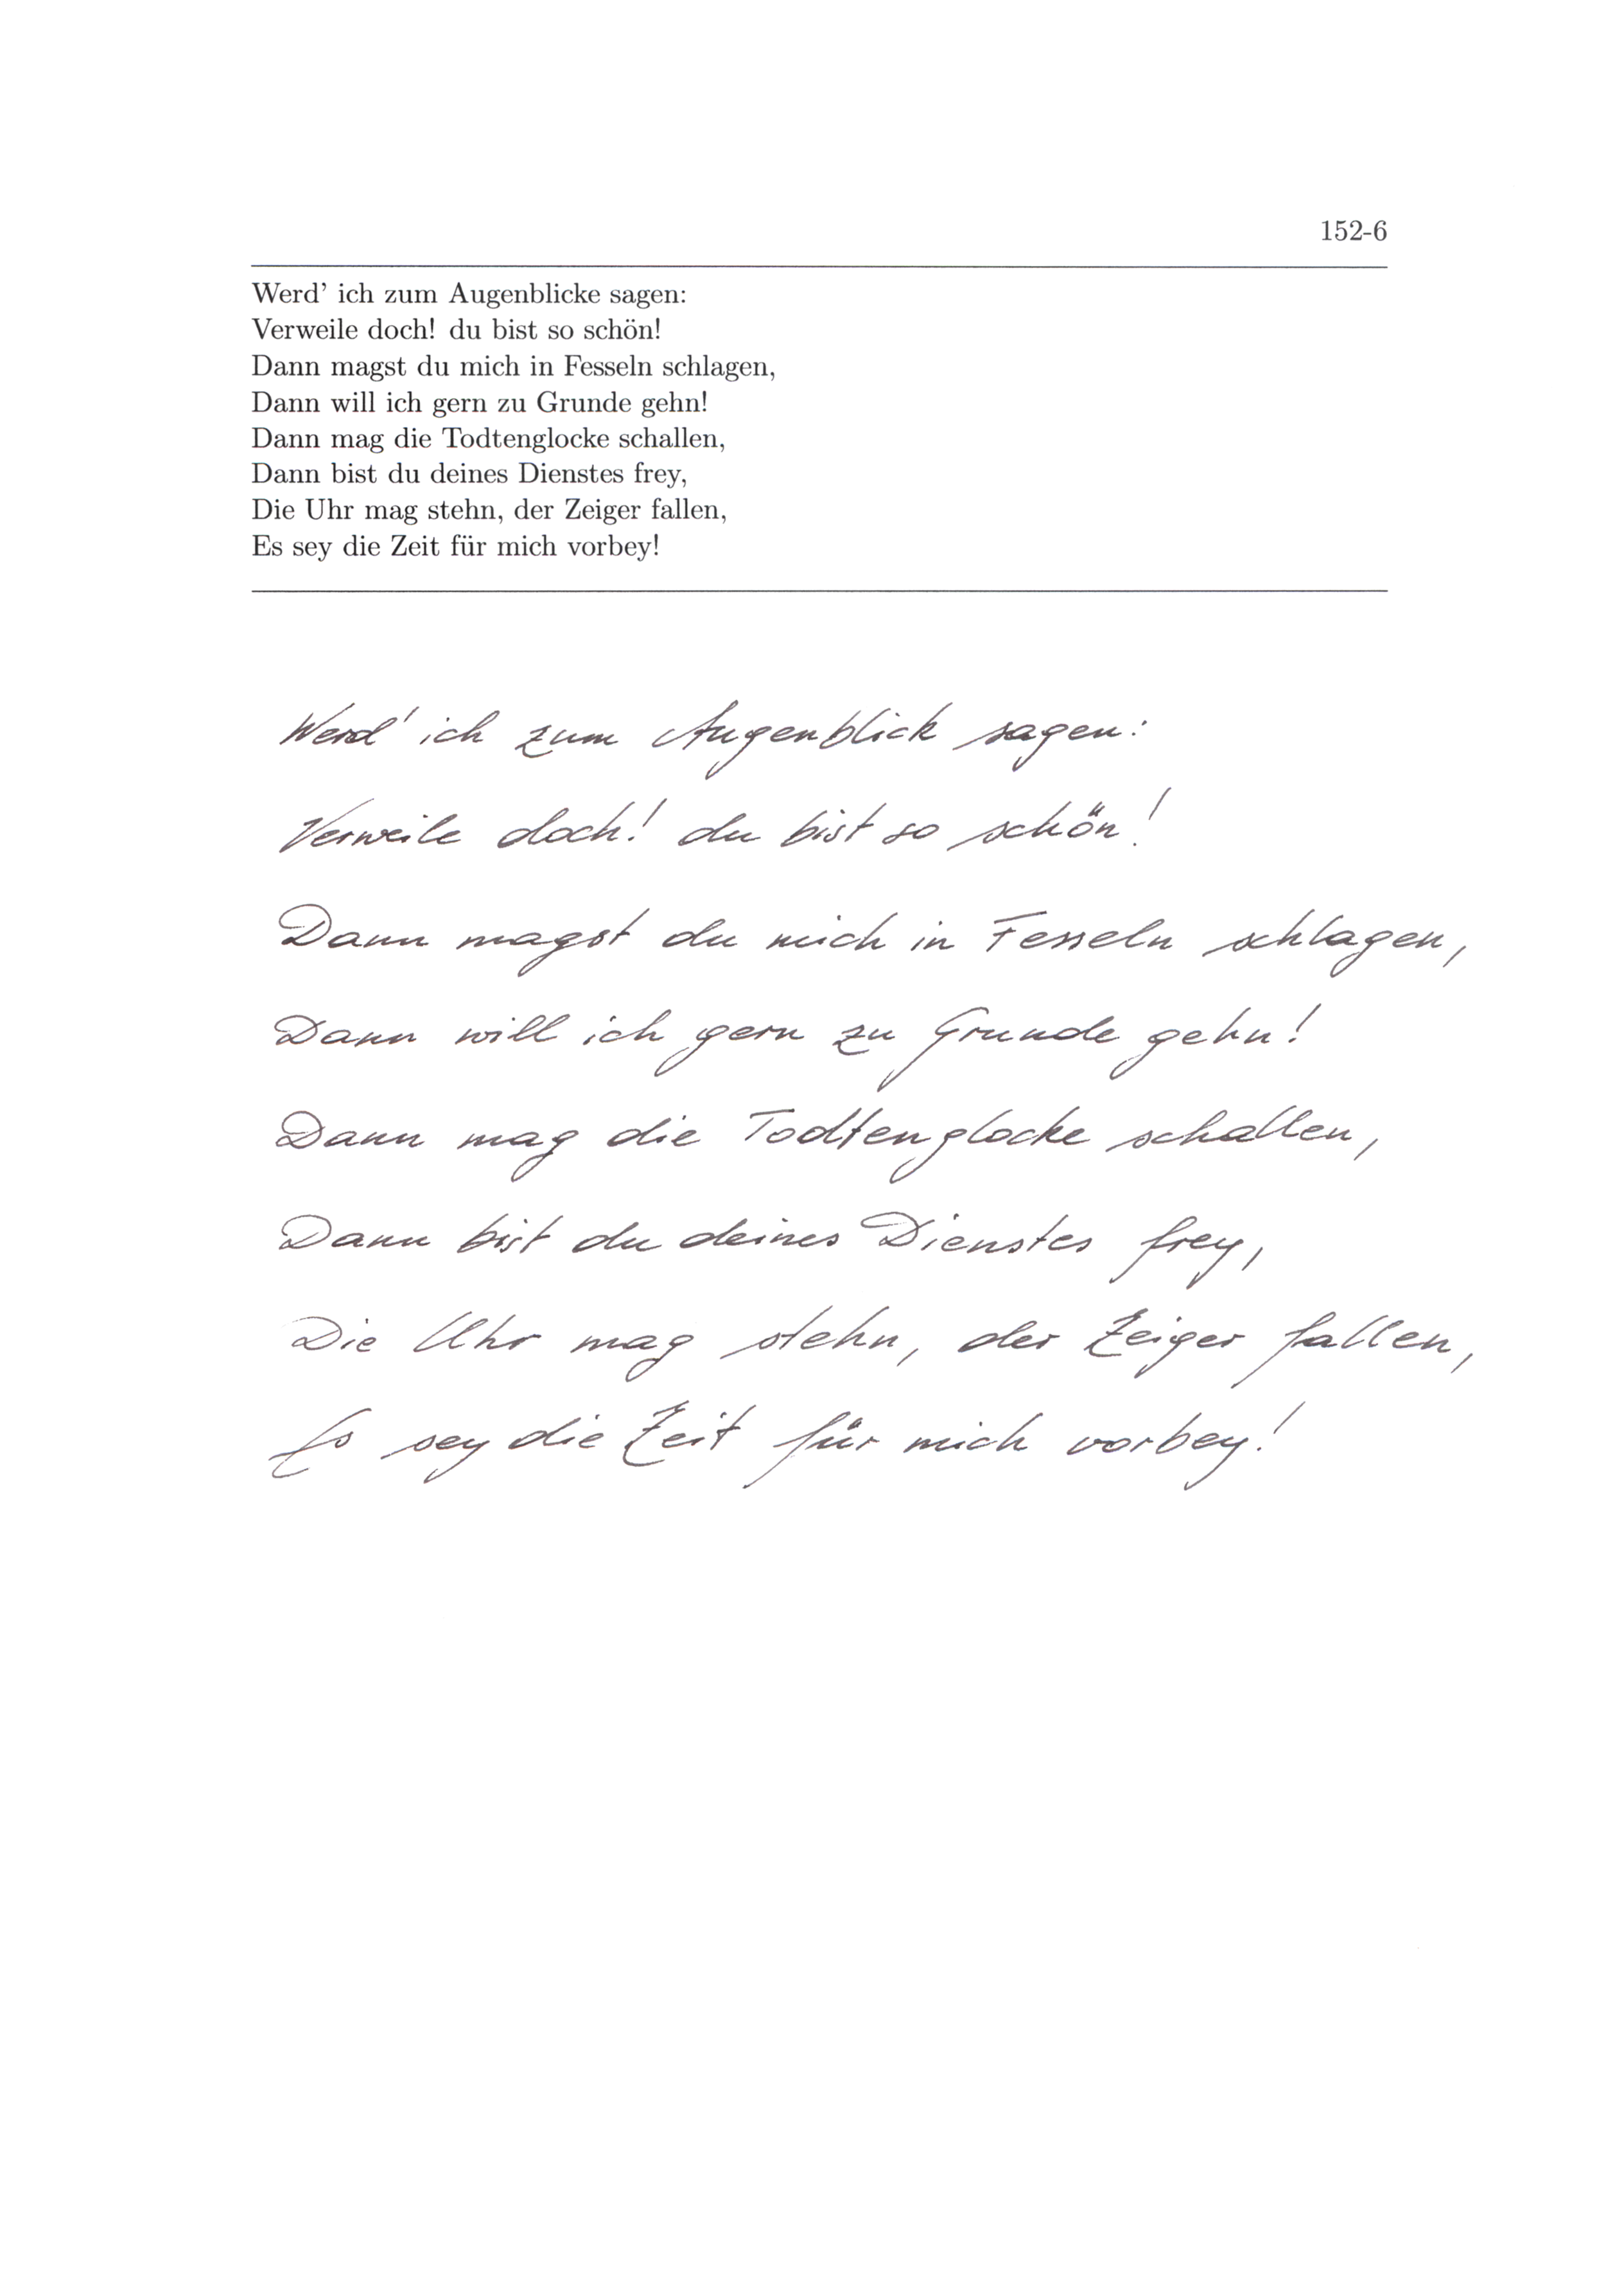 152-6
Werd' ich zum Augenblicke sagen:
Verweile doch! du bist so schön!
Dann magst du mich in Fesseln schlagen,
Dann will ich gern zu Grunde gehn!
Dann mag die Todtenglocke schallen,
Dann bist du deines Dienstes frey,
Die Uhr mag stehn, der Zeiger fallen,
Es sey die Zeit für mich vorbey!
Werd' ich zum Augenblick sagen:
Verweile doch! du bist so schön!
Dann magst du mich in Fesseln schlagen,
Dann will ich gern zu Grunde gehn!
Dann mag die Todtenglocke schallen,
Dann bist du deines Dienstes frey,
Die Uhr mag stehn, der Zeiger fallen,
Es sey die Zeit für mich vorbey!